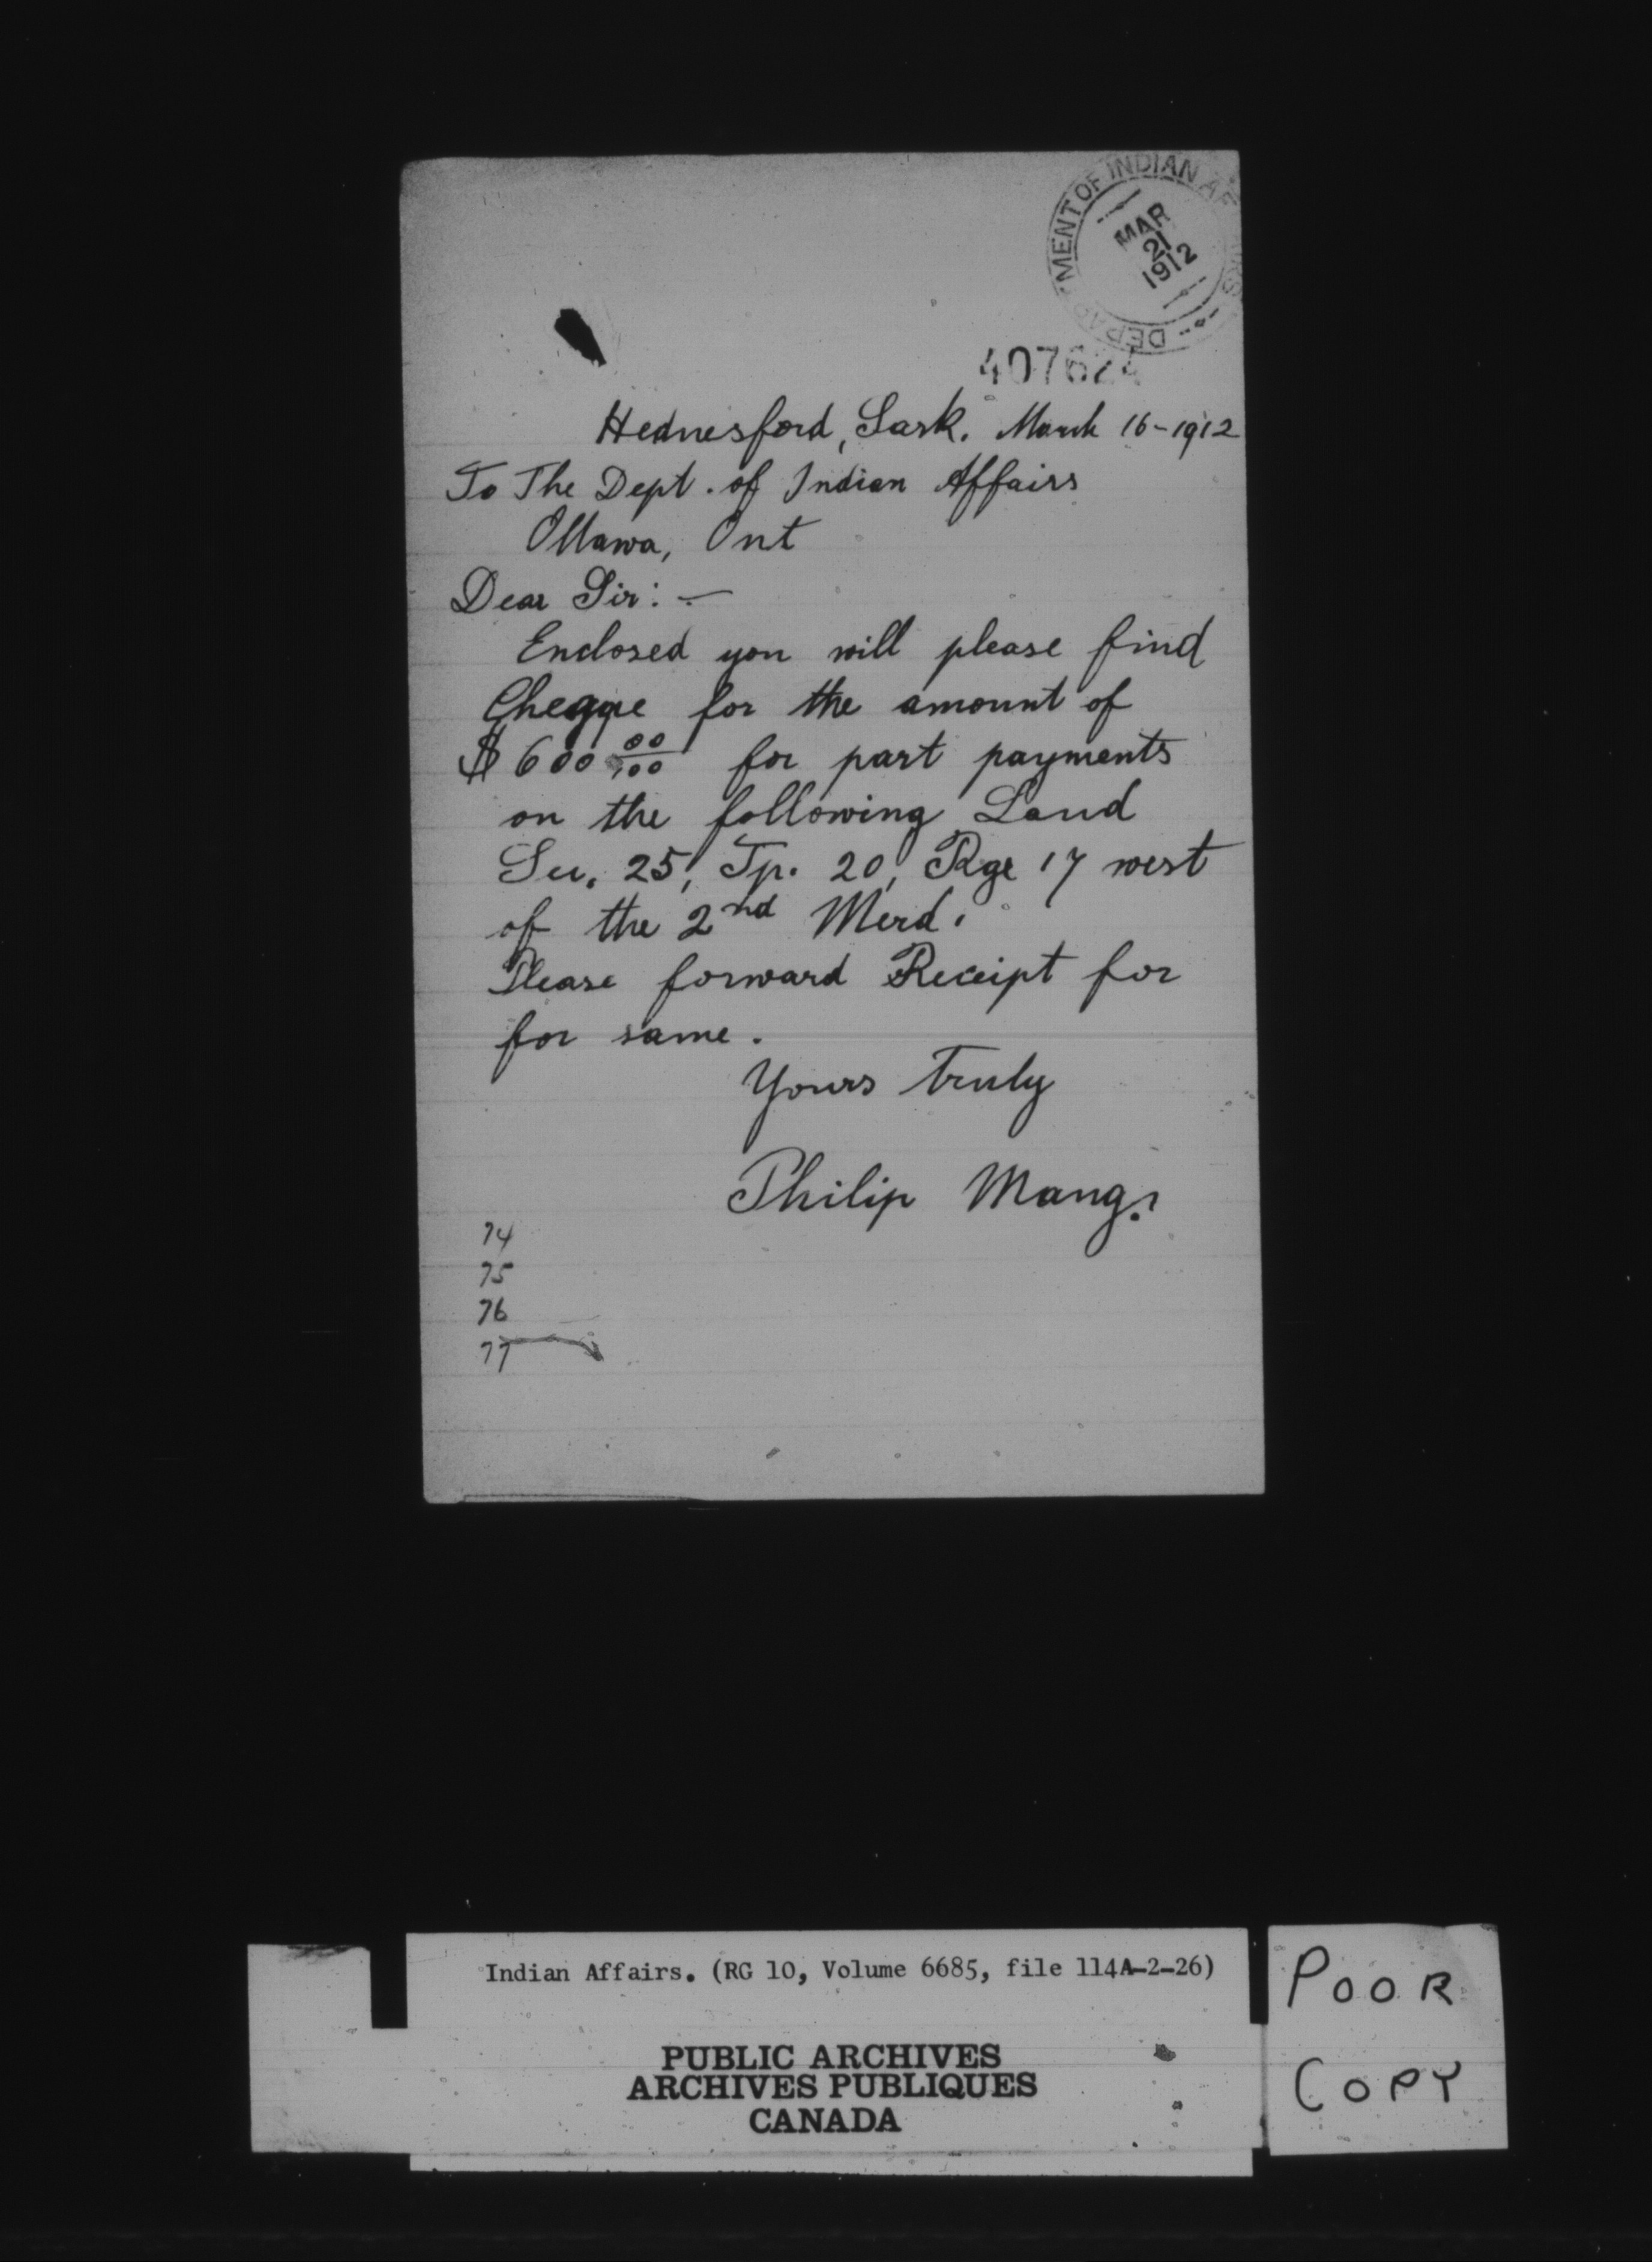 DEPARTMENT OF INDIAN AFFAIRS
MAR
21
1912
407624
Hednesford, Sask. March 16-1912
To The Dept. of Indian Affairs
Ottawa, Ont
Dear Sir:-
Enclosed you will please find
Cheque for the amount of
$600 00/100 for part payments
on the following Land
Sec. 25, Tp. 20, Rge 17 west
of the 2nd Merd.
Please forward Receipt for
for same.
Yours truly
Philip Mang.
74
75
76
77
Indian Affairs. (RG 10, Volume 6685, file 114A-2-26)
PUBLIC ARCHIVES
ARCHIVES PUBLIQUES
CANADA
POOR
COPY